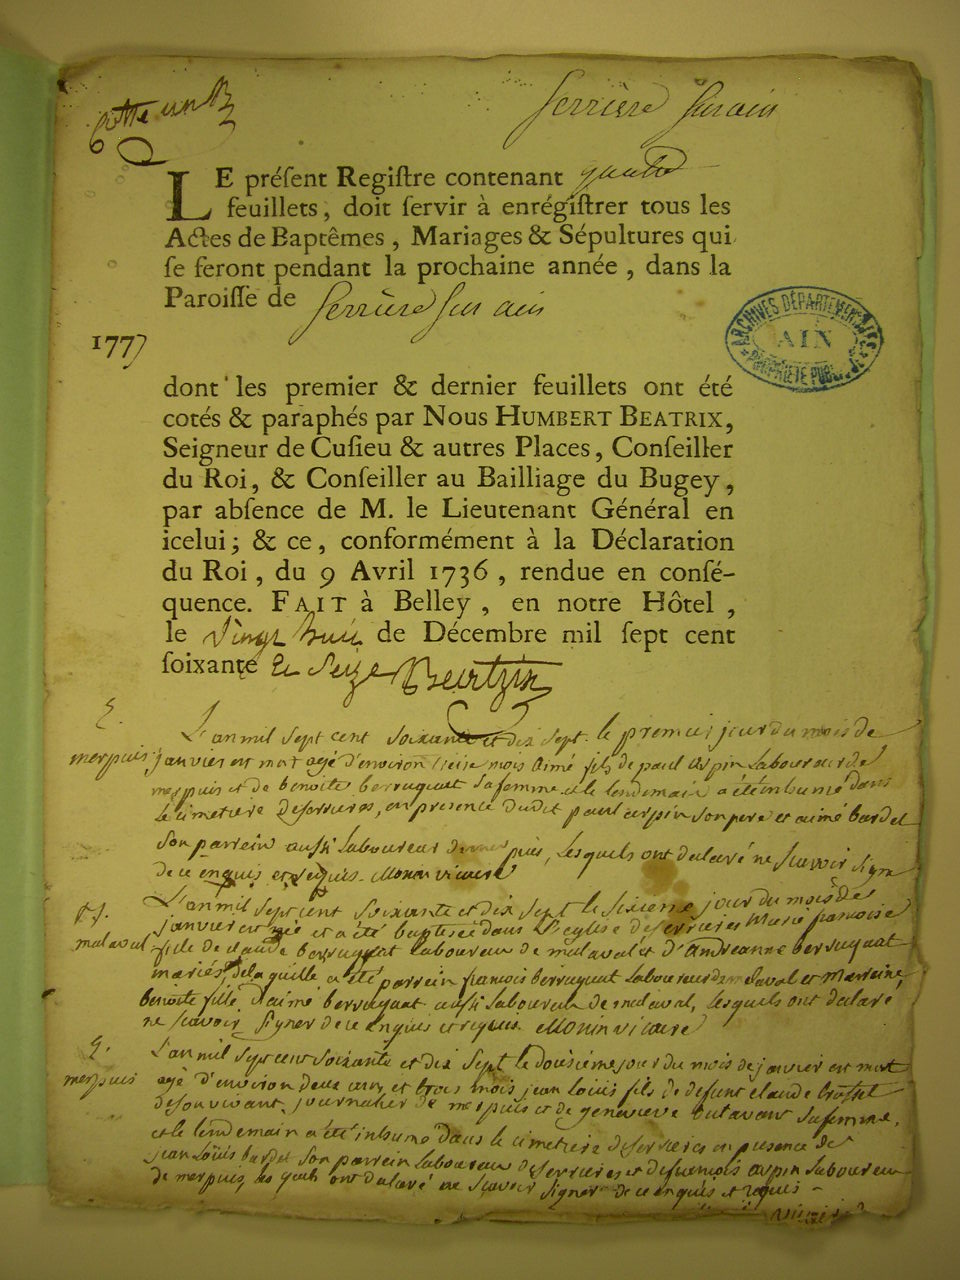 Cotte un B
Serrière Sur ain
LE préſent Regiſtre contenant quatre
feuillets, doit ſervir à enrégiſtrer tous les
Actes de Baptêmes, Mariages & Sépultures qui
ſe feront pendant la prochaine année, dans la
Paroiſſe de Serrière Sur ain
1777
ARCHIVES DÉPARTEMENTALES
AIN
PROPRIÉTÉ PUBLIQUE
dont les premier & dernier feuillets ont été
cotés & paraphés par Nous HUMBERT BEATRIX,
Seigneur de Cuſieu & autres Places, Conſeiller
du Roi, & Conſeiller au Bailliage du Bugey,
par abſence de M. le Lieutenant Général en
icelui; & ce, conformément à la Déclaration
du Roi, du 9 Avril 1736, rendue en conſé-
quence. FAIT à Belley, en notre Hôtel,
le Vingt huit de Décembre mil ſept cent
ſoixante et Seize Beatrix
S.
L'an mil Sept cent Soixante et dix Sept le premier jour du mois de
merpuis janvier est mort agé d'environ mois Aimé fils de paul Aspin Laboureur de
merpuis et de benoite berruquat Sa femme et le lendemain a été inhumé dans
le cimetiere deserrieres, en presence dudit paul aspin Son pere et aimé bardet
Son parrein aussi laboureur de merpuis, lesquels ont declaré ne Scavoir Signer
de ce enquis et requis. Monin vicaire
L'an mil Sept cent Soixante et dix Sept le Sixieme jour du mois de
janvier est née et a été baptisée dans l'eglise deserrieres Marie francoise
malaval fille de claude berruquat laboureur de malaval et d'Andreanne berruquat
mariés, de laquelle a été parrein francois berruquat laboureur de malaval et Marreine,
benoite fille d'aimé berruquat aussi laboureur de malaval, lesquels ont declaré
ne Scavoir Signer de ce enquis et requis. Monin vicaire
S.
L'an mil Sept cent Soixante et dix Sept le Douzieme jour du mois de janvier est mort
merpuis agé d'environ deux ans et trois mois jean louis fils de defunt claude
de Son vivant, journalier de merpuis et de genevieve Sa femme,
et le lendemain a été inhumé dans le cimetiere deserrieres en presence de
jean Louis bardet Son parrein laboureur deserrieres et de francois aspin laboureur
de merpuis, lesquels ont declaré ne Scavoir Signer de ce enquis et requis